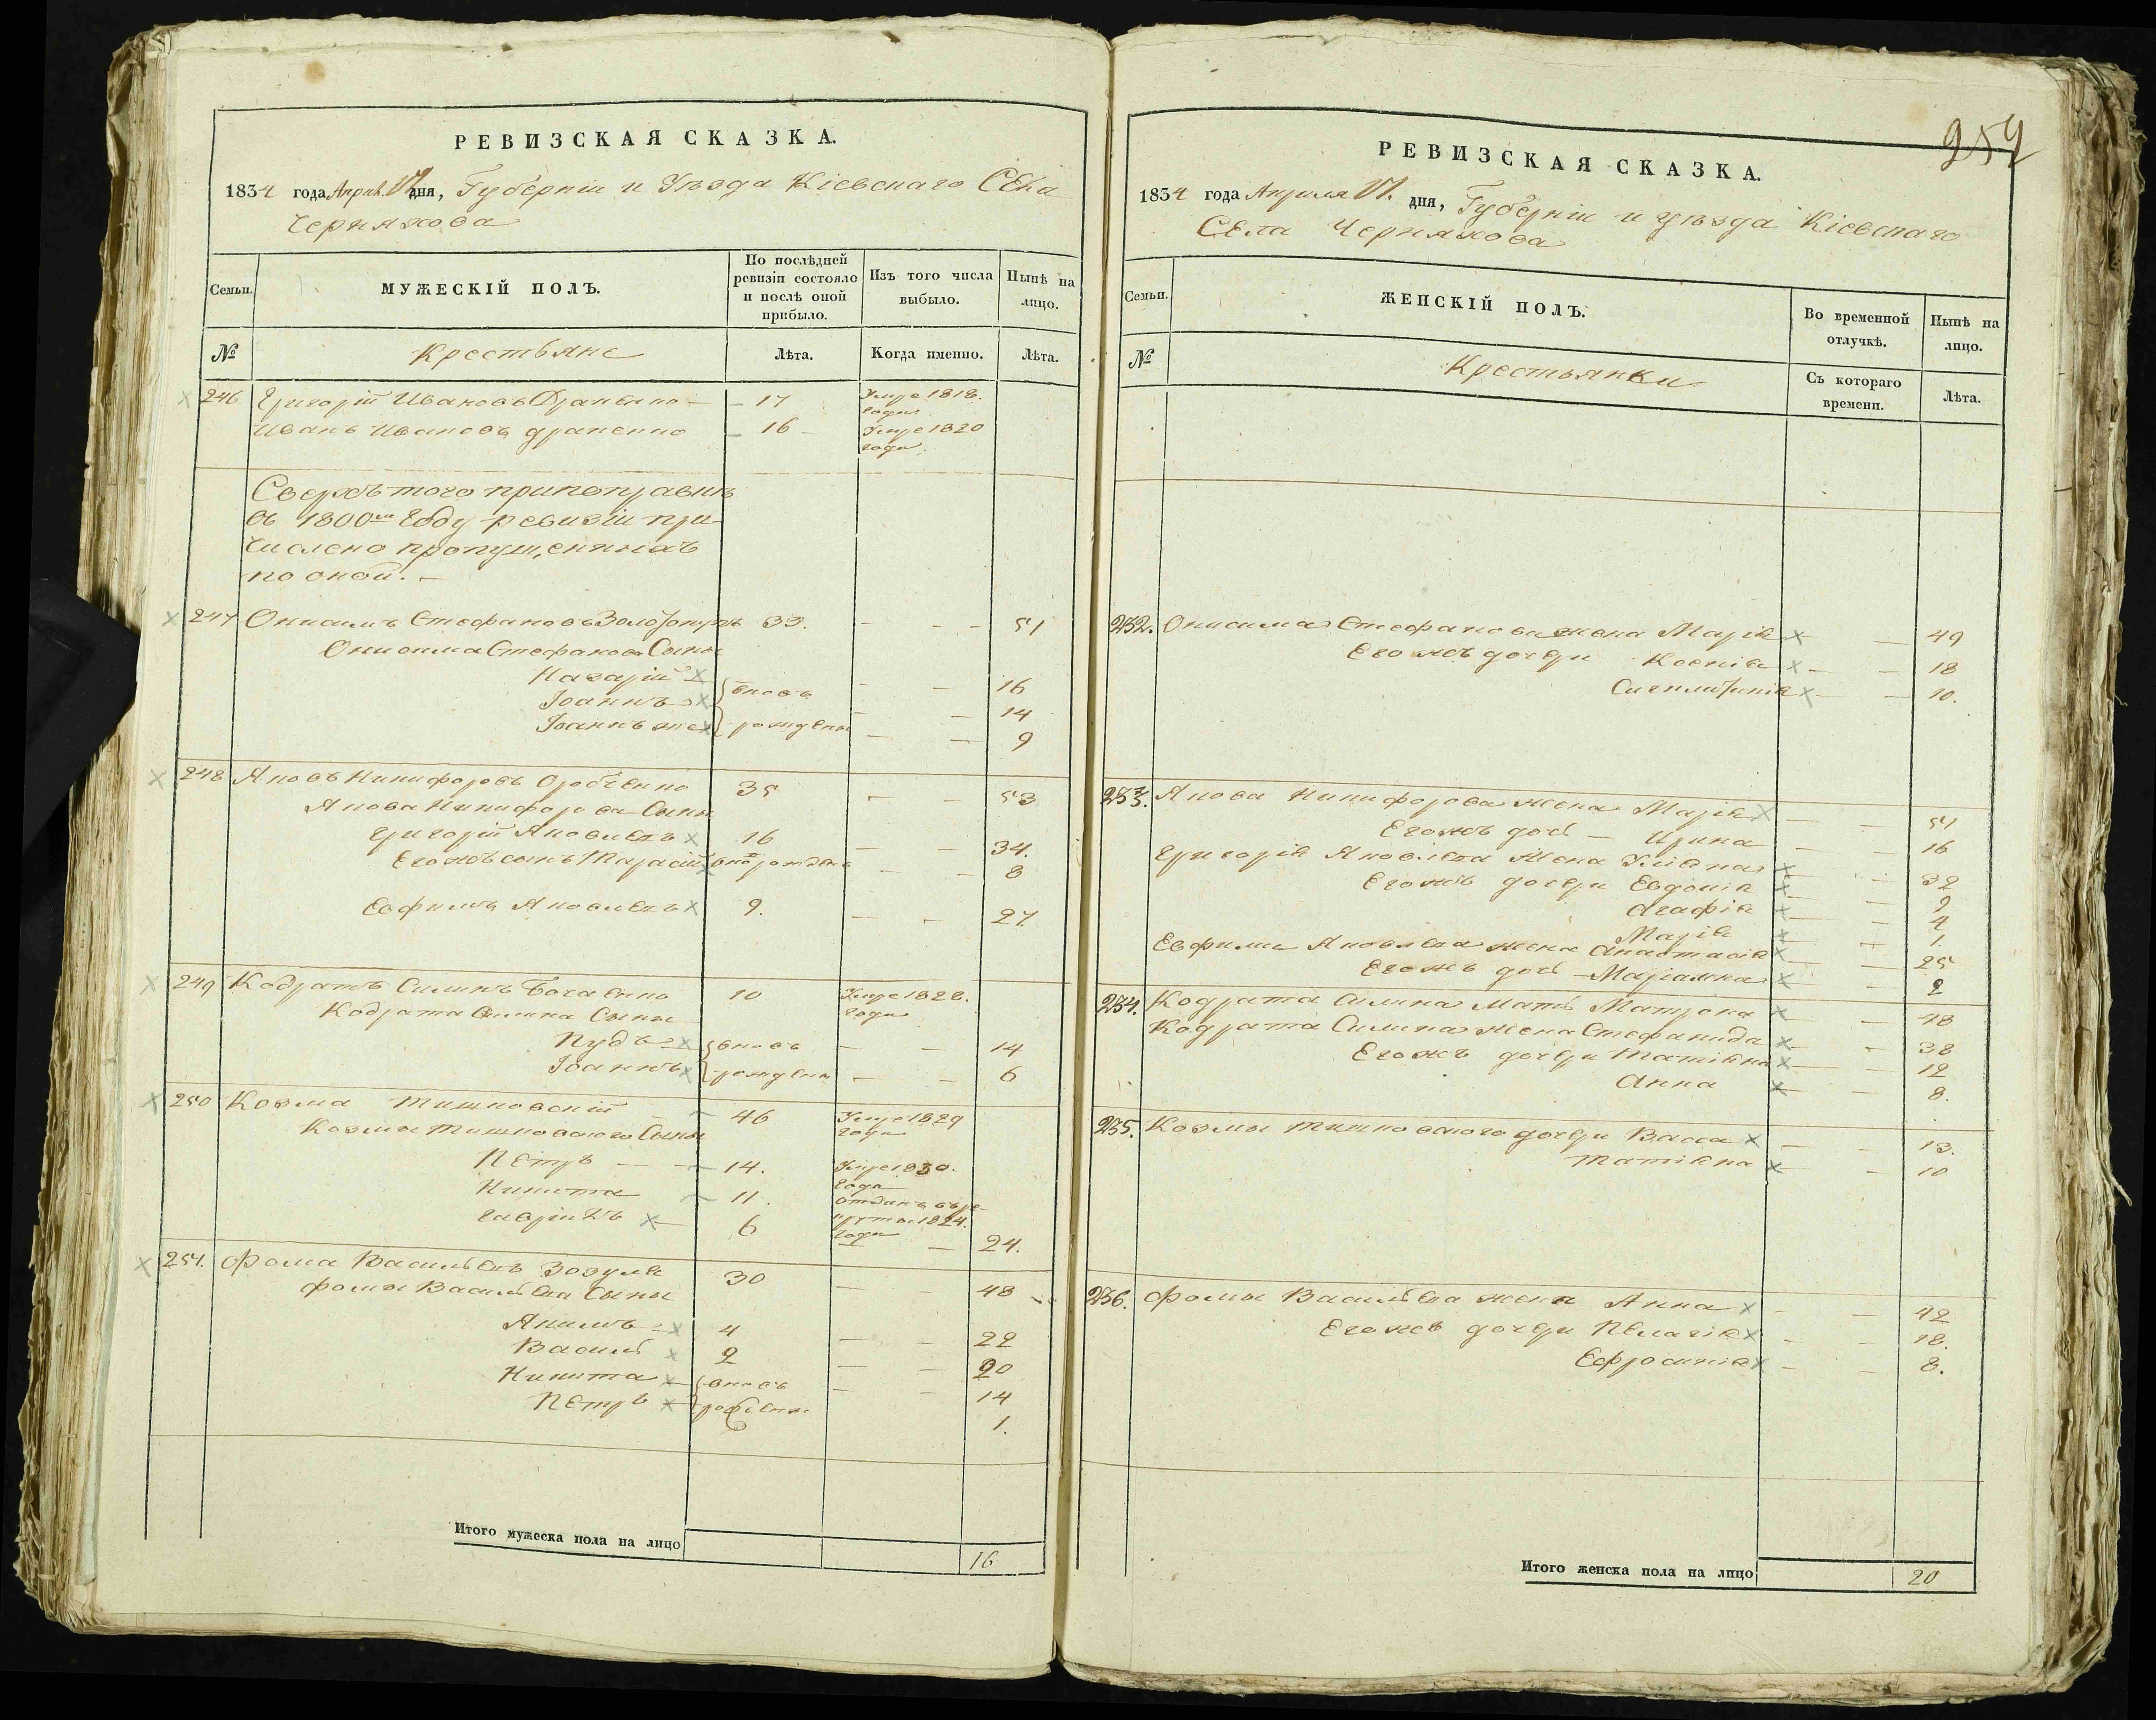 РЕВИЗСКАЯ СКАЗКА.
1834 года дня, Губерніи и Уѣзда Кіевскаго Села
Черняхова
Семьи.
МУЖЕСКІЙ ПОЛЪ.
По послѣдней ревизіи состояло и послѣ оной прибыло.
Изъ того числа выбыло.
Нынѣ на лицо.
№
Крестьяне
Лѣта.
Когда именно.
Лѣта.
246 Григорій Ивановъ 17 Умре 1818. года
Иванъ Ивановъ 16 Умре 1820 года
Сверхъ того
въ 1800мъ Году ревизіи при
числено пропущенныхъ
по оной.
247 Онисимъ Стефановъ 33. 51
Онисима Стефанова Сыны
Назарій вновь 16
Іоаннъ 14
Іоаннъ же рождены 9
248 Яковъ Никифоровъ 35 53
Якова Никифорова Сыны
Григорій Яковлевъ 16 34.
Егожъ сынъ Тарасій 8
Евфимъ Яковлевъ 9. 27.
249 Кодратъ Силинъ 10 Умре 1828. года
Кодрата Силина Сыны
вновь 14
Іоаннъ рождены 6
250 Козма Тишковскій 46 Умре 1829 года
Козмы Тишковскаго Сыны
Петръ 14. Умре 1830. года
Никита 11. отданъ въ рекруты 1824. года
6 24.
251. Фома Васильевъ Зозуля 30 48
Фомы Васильева Сыны
Якимъ 4 22
Василь 2 20
Никита вновь 14
Петръ 1.
Итого мужеска пола на лицо 16
РЕВИЗСКАЯ СКАЗКА.
1834 года Апреля дня, Губерніи и уѣзда Кіевскаго
Села Черняхова
Семьи.
ЖЕНСКІЙ ПОЛЪ.
Во временной отлучкѣ.
Нынѣ на лицо.
№
Крестьянки
Съ котораго времени.
Лѣта.
232. Онисима Стефанова жена Марія 49
Егожъ дочери Ксенія 18
10.
233. Якова Никифорова жена Марія 51
Егожъ дочь Ирина 16
Григорія Яковлева жена Уліяна 32
Егожъ дочери Евдокія 9
Агафія 4
Марія 1.
Евфима Яковлева жена Анастасія 25
Егожъ дочь Маріамна 2
234. Кодрата Силина мать Матрона 48
Кодрата Силина жена Стефанида 38
Егожъ дочери Татіяна 12
Анна 8.
235. Козмы Тишковскаго дочери Васса 13.
Татіяна 10
236. Фомы Васильева жена Анна 42
Егожъ дочери Пелагія 18.
Ефросинія 8.
Итого женска пола на лицо 20